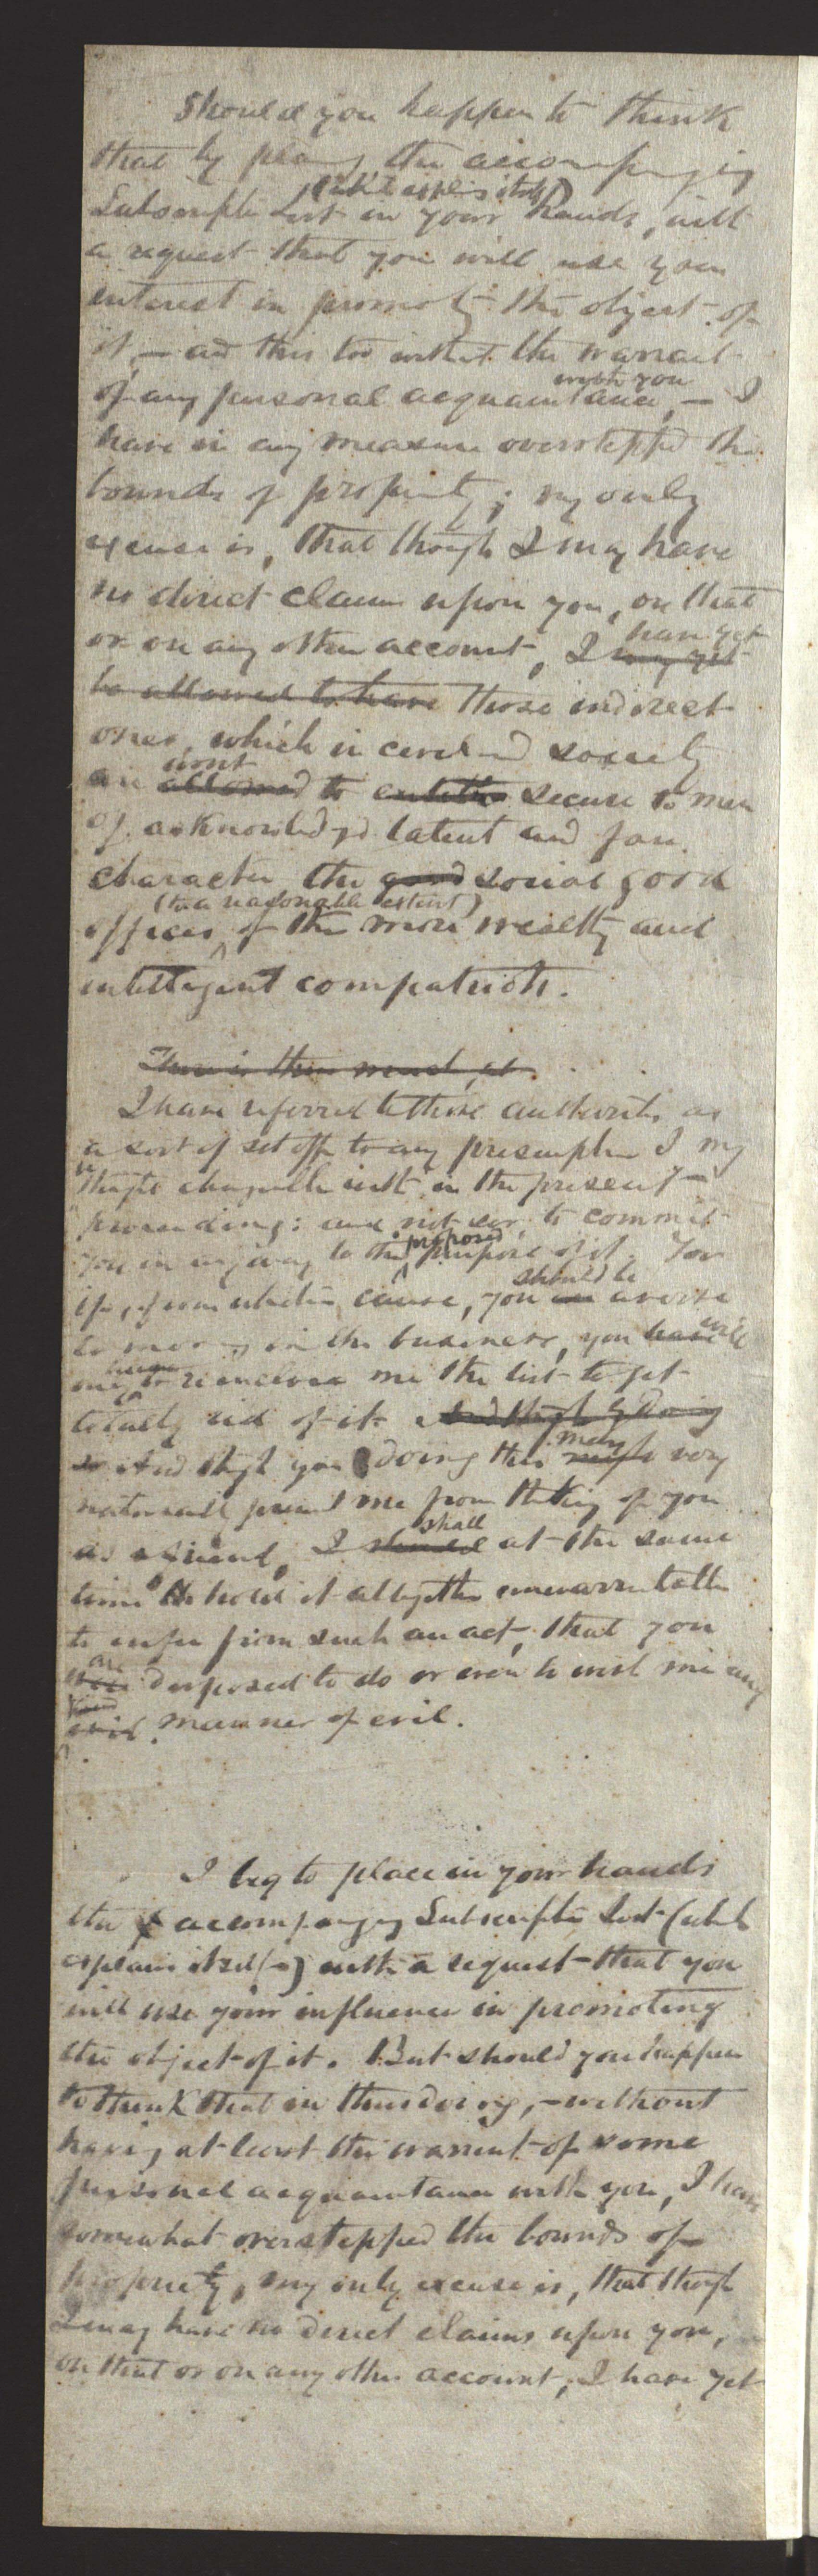 Should you happen to think
that by placing the accompanying
(which explains itself)
Subscriptn List in your hands, with
a request that you will use your
interest in promotg the object of
it, — and this too without the warrant
with you
of any personal acquaintance, — I
have in any measure overstepped the
bounds of propriety; my only
excuse is, that though I may have
no direct claim upon you, on that
have yet
or on any other account, I may yet
be allowed to have those indirect
ones, which in civilized society
wont
are allowed to secure to men
of acknowledged talent and fair
character the good social good
(to a reasonable extent)
offices of the more wealthy and
intelligent compatriots.
There is then
I have referred to these authorits as
a sort of set off to any presumption I my
be
thought chargeable with in the present
proceeding: and not to commit
proposed
you in any way to the purpose of it. For
should be
if, from whatever cause, you are averse
will
to moving in the business, you have
have
only to reinclose me the list to get
totally rid of it. And though by doing
may
so And though your doing this might very
naturally prevent me from thinking of you
shall
as a friend, I should at the same
time hold it altogether unwarrantable
to infer from such an act, that you
are
were disposed to do or even to wish me any
kind
evil manner of evil.
I beg to place in your hands
the accompanying Subscriptn List (which
explains itself) with a request that you
will use your influence in promoting
the object of it. But should you happen
to think that in thus doing, — without
having at least the warrant of some
personal acquaintance with you, I have
somewhat overstepped the bounds of
propriety, my only excuse is, that though
I may have no direct claims upon you,
on that or on any other account, I have yet